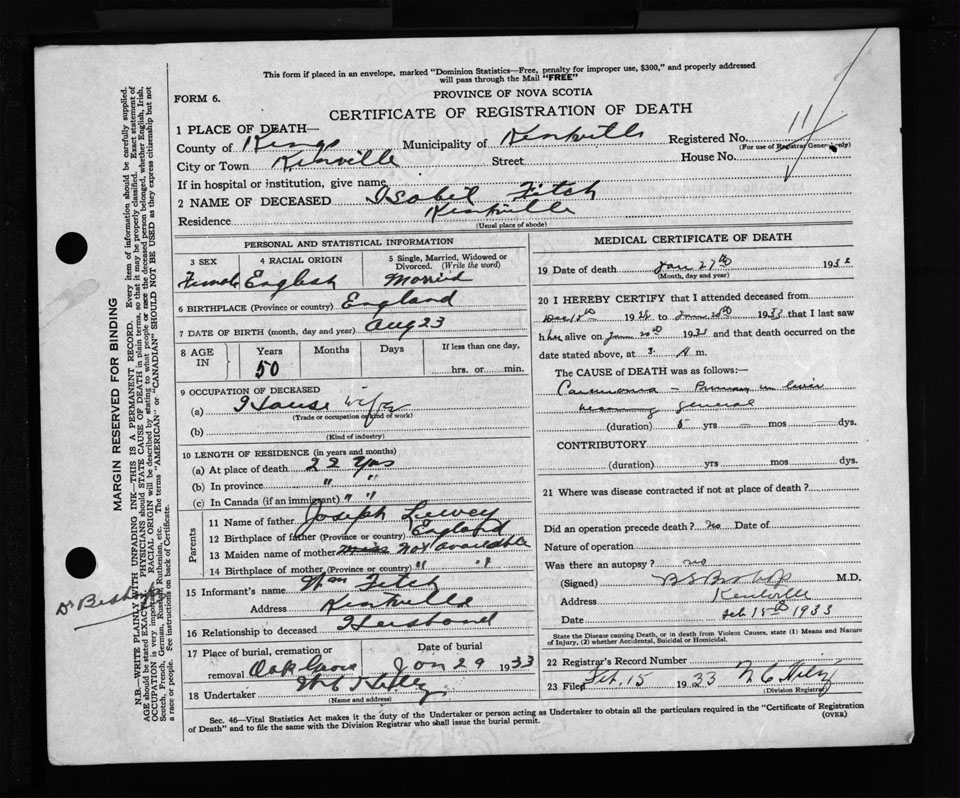 This form if placed in an envelope, marked "Dominion Statistics—Free, penalty for improper use, $300," and properly addressed
will pass through the Mail "FREE"
FORM 6.
PROVINCE OF NOVA SCOTIA
CERTIFICATE OF REGISTRATION OF DEATH
1 PLACE OF DEATH—
County of Kings Municipality of Kentville Registered No. 11
(For use of Registrar General only)
City or Town Kentville Street House No.
If in hospital or institution, give name
2 NAME OF DECEASED Isabel Fitch
Residence Kentville
(Usual place of abode)
PERSONAL AND STATISTICAL INFORMATION
3 SEX 4 RACIAL ORIGIN 5 Single, Married, Widowed or
Divorced. (Write the word)
Female English Married
6 BIRTHPLACE (Province or country) England
7 DATE OF BIRTH (month, day and year) Aug 23
8 AGE IN Years Months Days If less than one day,
50 hrs. or min.
9 OCCUPATION OF DECEASED
(a) House wife
(Trade or occupation or kind of work)
(b)
(Kind of industry)
10 LENGTH OF RESIDENCE (in years and months)
(a) At place of death 22 yrs
(b) In province " "
(c) In Canada (if an immigrant) " "
Parents
11 Name of father Joseph
12 Birthplace of father (Province or country) England
13 Maiden name of mother Not available
14 Birthplace of mother (Province or country) " "
15 Informant's name Wm Fitch
Address Kentville
16 Relationship to deceased Husband
17 Place of burial, cremation or removal Date of burial
Oak Grove Jan 29 1933
18 Undertaker
(Name and address)
MEDICAL CERTIFICATE OF DEATH
19 Date of death Jan 27th 193
(Month, day and year)
20 I HEREBY CERTIFY that I attended deceased from
Dec 18th 1928 to Jan 1933 that I last saw
her alive on Jan 1933 and that death occurred on the
date stated above, at 3 A m.
The CAUSE of DEATH was as follows:—
Carcinoma – Primary in
general
(duration) 5 yrs mos dys.
CONTRIBUTORY
(duration) yrs mos dys.
21 Where was disease contracted if not at place of death?
Did an operation precede death? no Date of
Nature of operation
Was there an autopsy? no
(Signed) B S Bishop M.D.
Address Kentville
Date Feb 15th 1933
State the Disease causing Death, or in death from Violent Causes, state (1) Means and Nature
of Injury, (2) whether Accidental, Suicidal or Homicidal.
22 Registrar's Record Number
23 Filed Feb. 15 1933
(Division Registrar)
Sec. 46—Vital Statistics Act makes it the duty of the Undertaker or person acting as Undertaker to obtain all the particulars required in the "Certificate of Registration
of Death" and to file the same with the Division Registrar who shall issue the burial permit. (OVER)
MARGIN RESERVED FOR BINDING
N.B.—WRITE PLAINLY WITH UNFADING INK—THIS IS A PERMANENT RECORD. Every item of information should be carefully supplied.
AGE should be stated EXACTLY. PHYSICIANS should STATE CAUSE OF DEATH in plain terms, so that it may be properly classified. Exact statement of
OCCUPATION is very important. RACIAL ORIGIN will be described by stating to what people or race the deceased person belonged, whether English, Irish,
Scotch, French, German, Russian, Ruthenian, etc. The terms "AMERICAN" or "CANADIAN" SHOULD NOT BE USED as they express citizenship but not
a race or people. See instructions on back of Certificate.
Dr Bishop